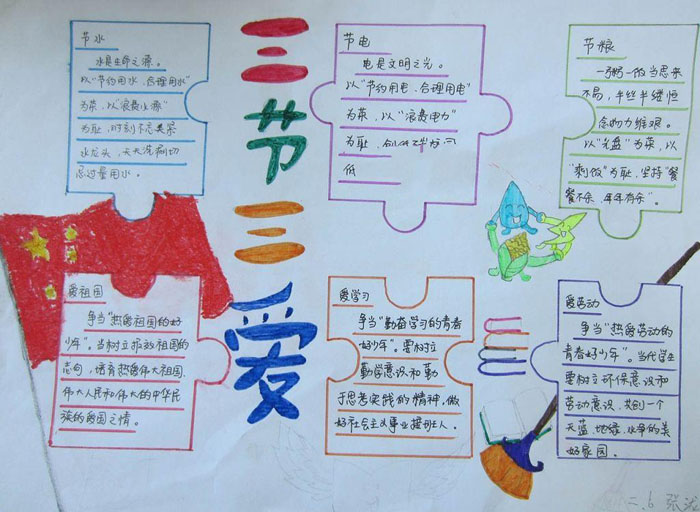 三节三爱
节水
水是生命之源。
以"节约用水，合理用水"
为荣，以"浪费水源"
为耻，时刻不忘关紧
水龙头，天天洗刷切
忌过量用水。
节电
电是文明之光。
以"节约用电，合理用电"
为荣，以"浪费电力"
为耻，
低
节粮
一粥一饭当思来
不易，半丝半缕恒
念物力维艰。
以"光盘"为荣，以
"剩饭"为耻，坚持"餐
餐不余，年年有余"。
爱祖国
争当"热爱祖国的好
少年"。当树立报效祖国的
志向，培育热爱伟大祖国、
伟大人民和伟大的中华民
族的爱国之情。
爱学习
争当"勤奋学习的青春
好少年"。要树立
勤学意识和勤
于思考实践的精神，做
好社会主义事业接班人。
爱劳动
争当"热爱劳动的
青春好少年"。当代学生
要树立环保意识和
劳动意识，共创一个
天蓝、地绿、水净的美
好家园。
二.6 张